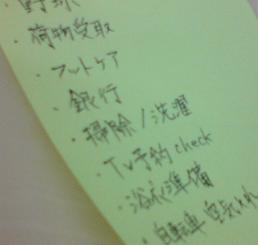 ・野球
・荷物受取
・フットケア
・銀行
・掃除/洗濯
・TV予約 check
・浴衣準備
・自転車